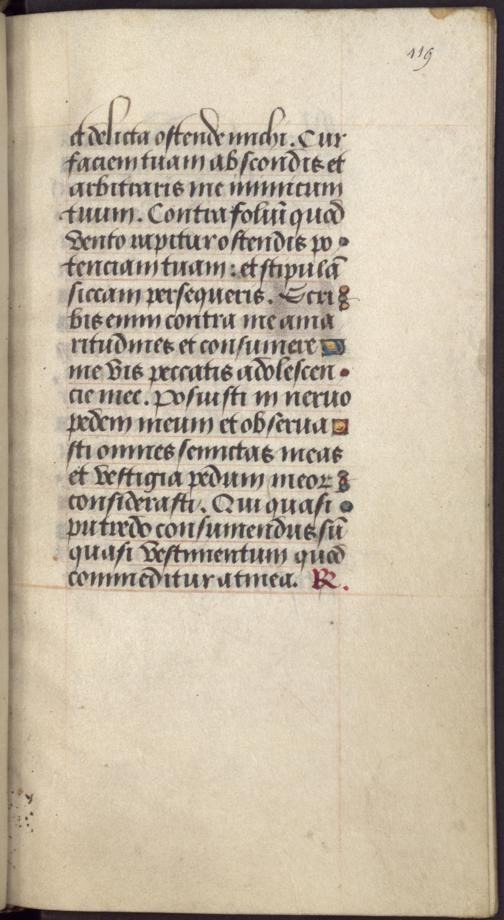 119
et delicta ostende michi. Cur
faciem tuam abscondis et
arbitraris me inimicum
tuum. Contra foliū quod
vento rapitur ostendis po
tenciam tuam: et stipulā
siccam persequeris. Scri
bis enim contra me ama
ritudines et consumere
me vis peccatis adolescen
cie mee. Posuisti in neruo
pedem meum et obserua
sti omnes semitas meas
et vestigia pedum meoꝝ
considerasti. Qui quasi
putredo consumendus sū
quasi vestimentum quod
commeditur a tinea. R.